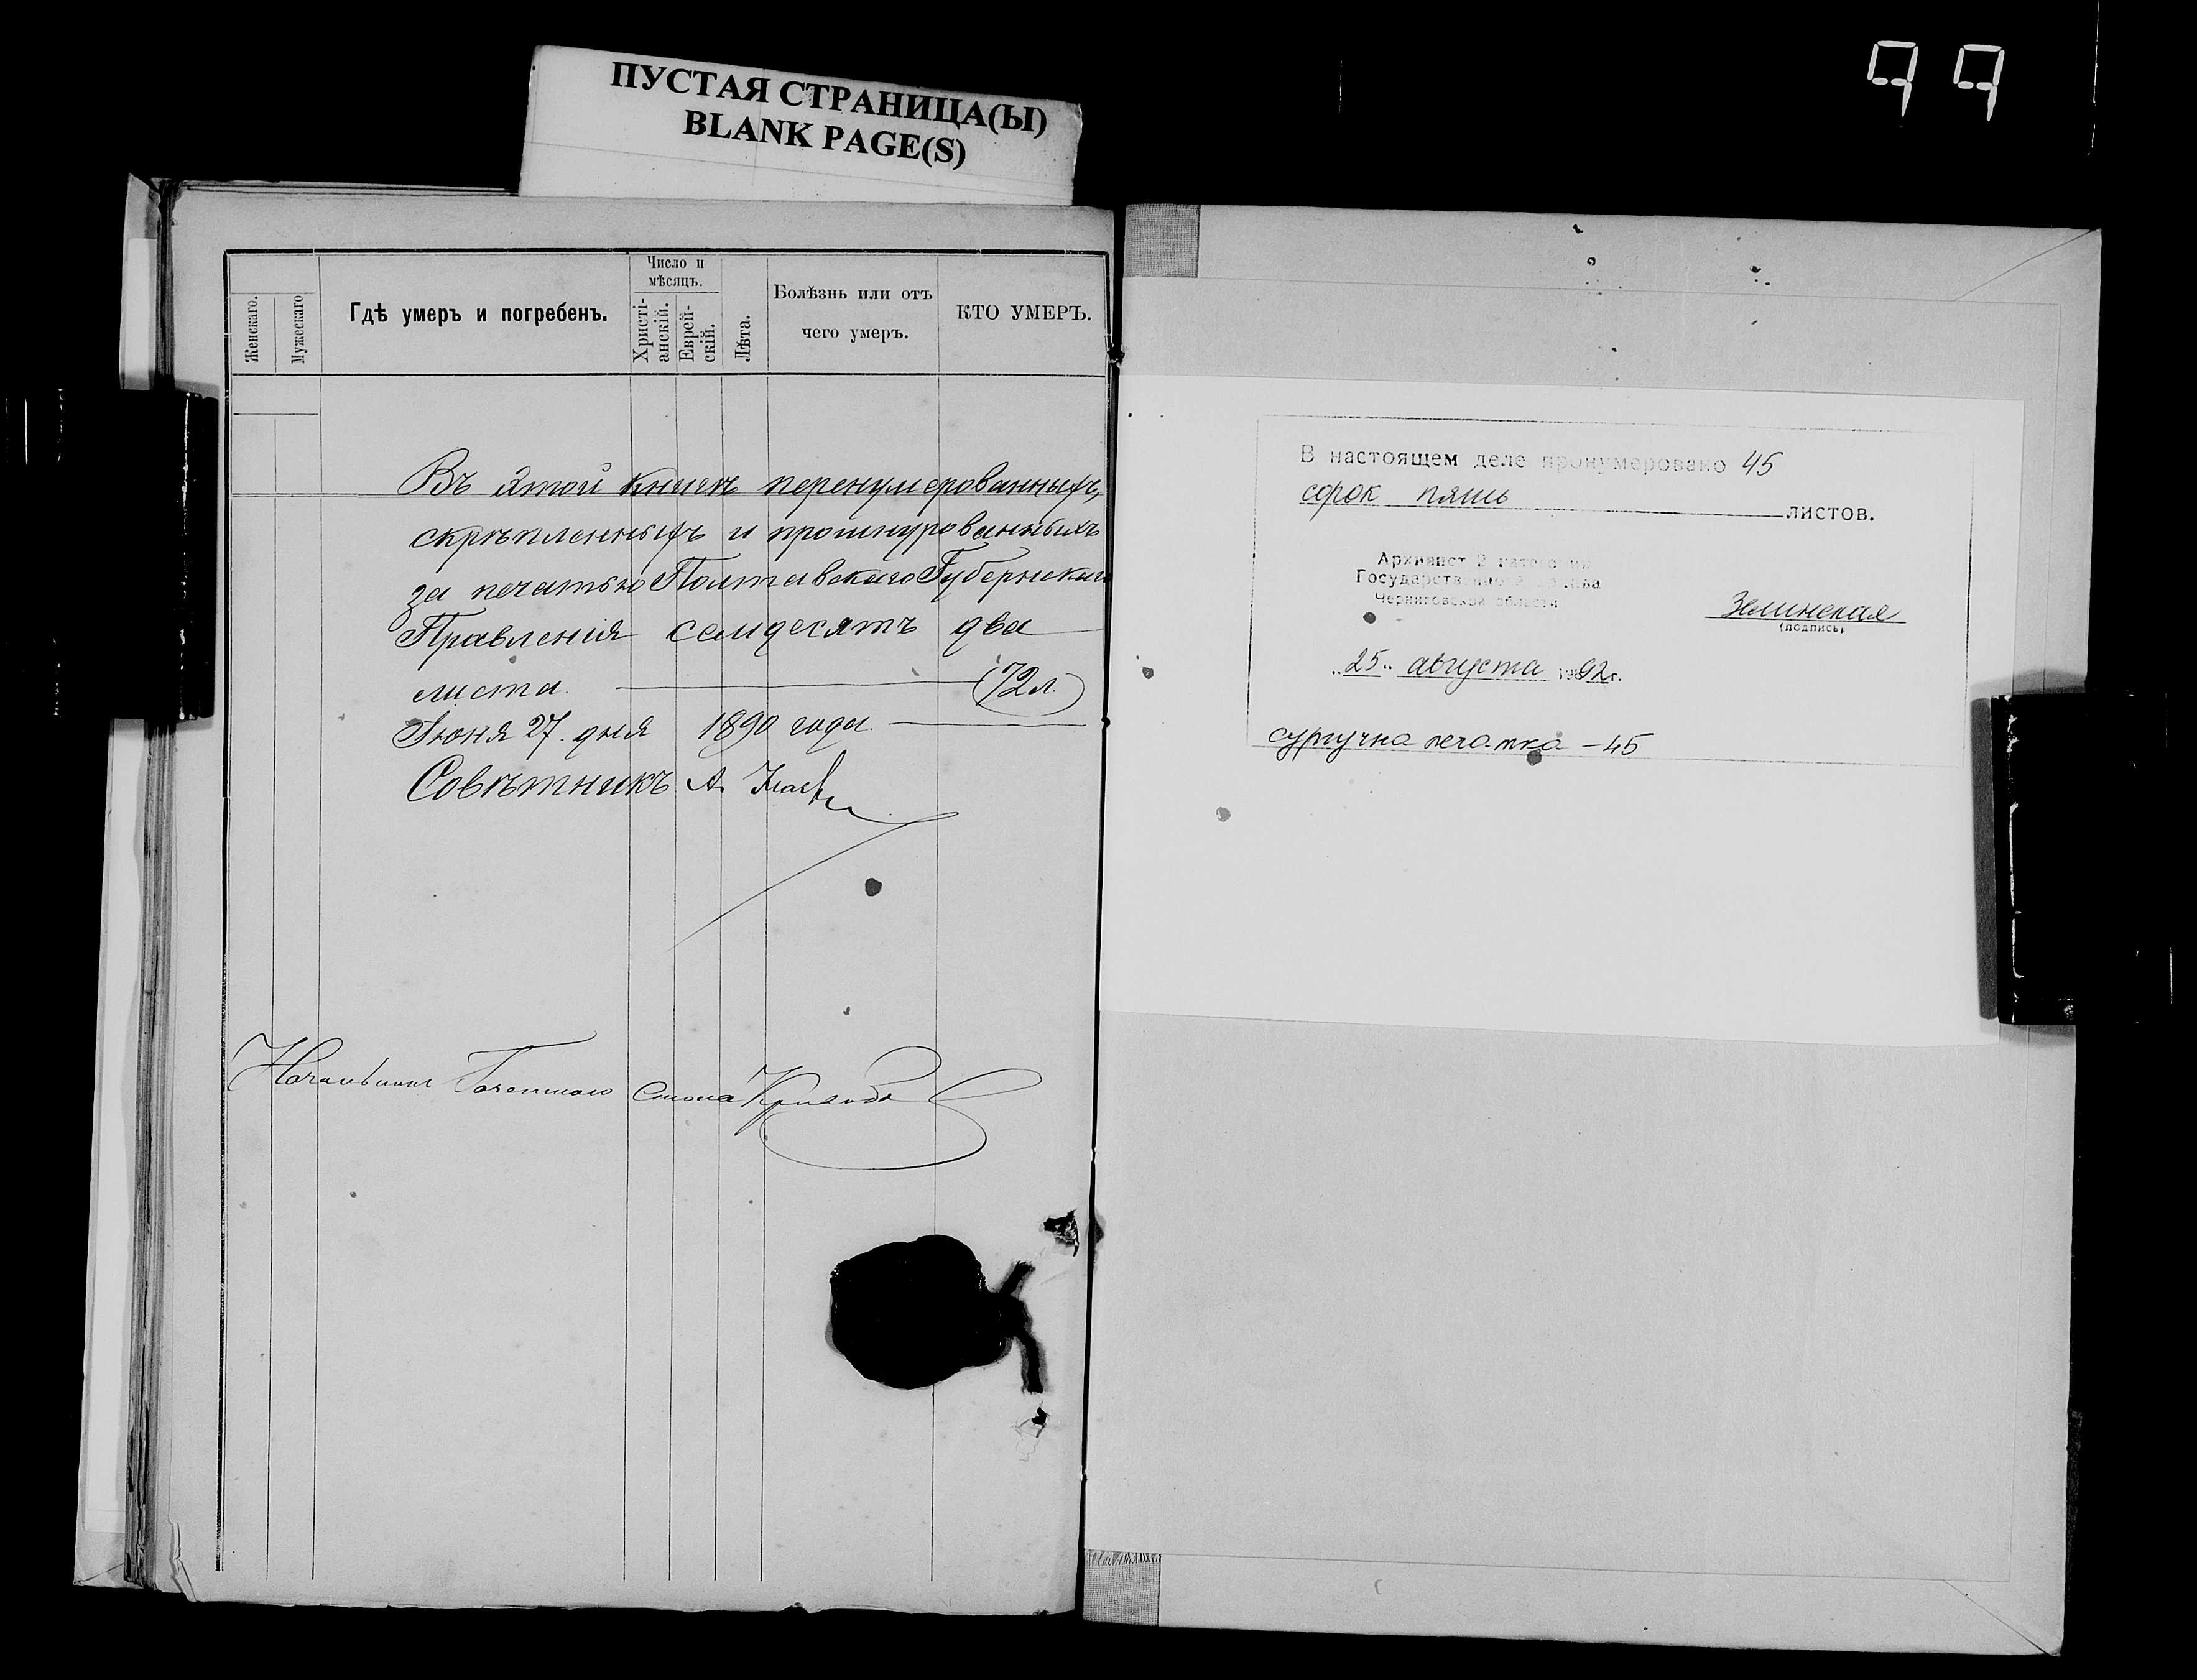 ПУСТАЯ СТРАНИЦА(Ы)
BLANK PAGE(S)
99
Женскаго.
Мужескаго
Гдѣ умеръ и погребенъ.
Число и
мѣсяцъ.
Христі-
анскій.
Еврей-
скій.
Лѣта.
Болѣзнь или отъ
чего умеръ.
КТО УМЕРЪ.
Въ этой книгѣ перенумерованныхъ,
скрѣпленныхъ и прошнурованныхъ
за печатью Полтавскаго Губернскаго
Правленія семдесятъ два
листа. (72 л.)
Іюня 27. дня 1890 года.
Совѣтникъ А.
Начальникъ Стола
В настоящем деле пронумеровано 45
сорок пять листов.
Архивист 2 категории
Государственного архива
Черниговской области
Зелинская
(подпись)
„25„ августа 1992г.
сургучна печатка - 45